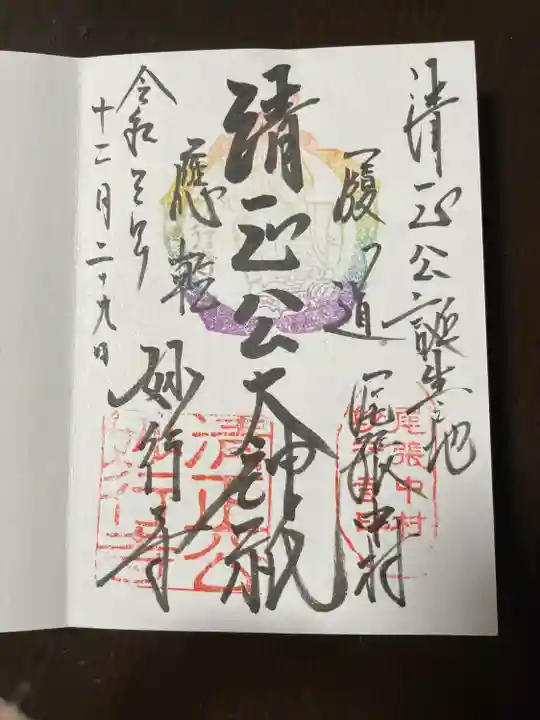 清正公誕生之地
履道應乾
尾張中村
清正公大神祇
妙行寺
令和三年
十二月二十九日
尾張中村
清正公